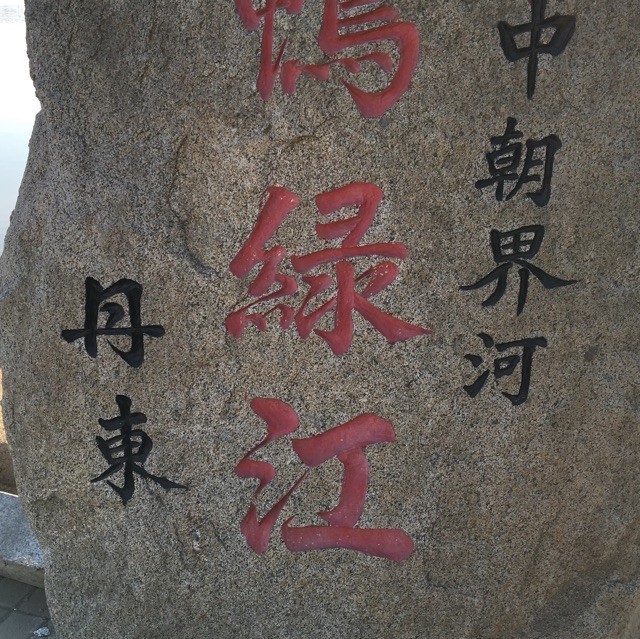 中朝界河
鴨緑江
丹東